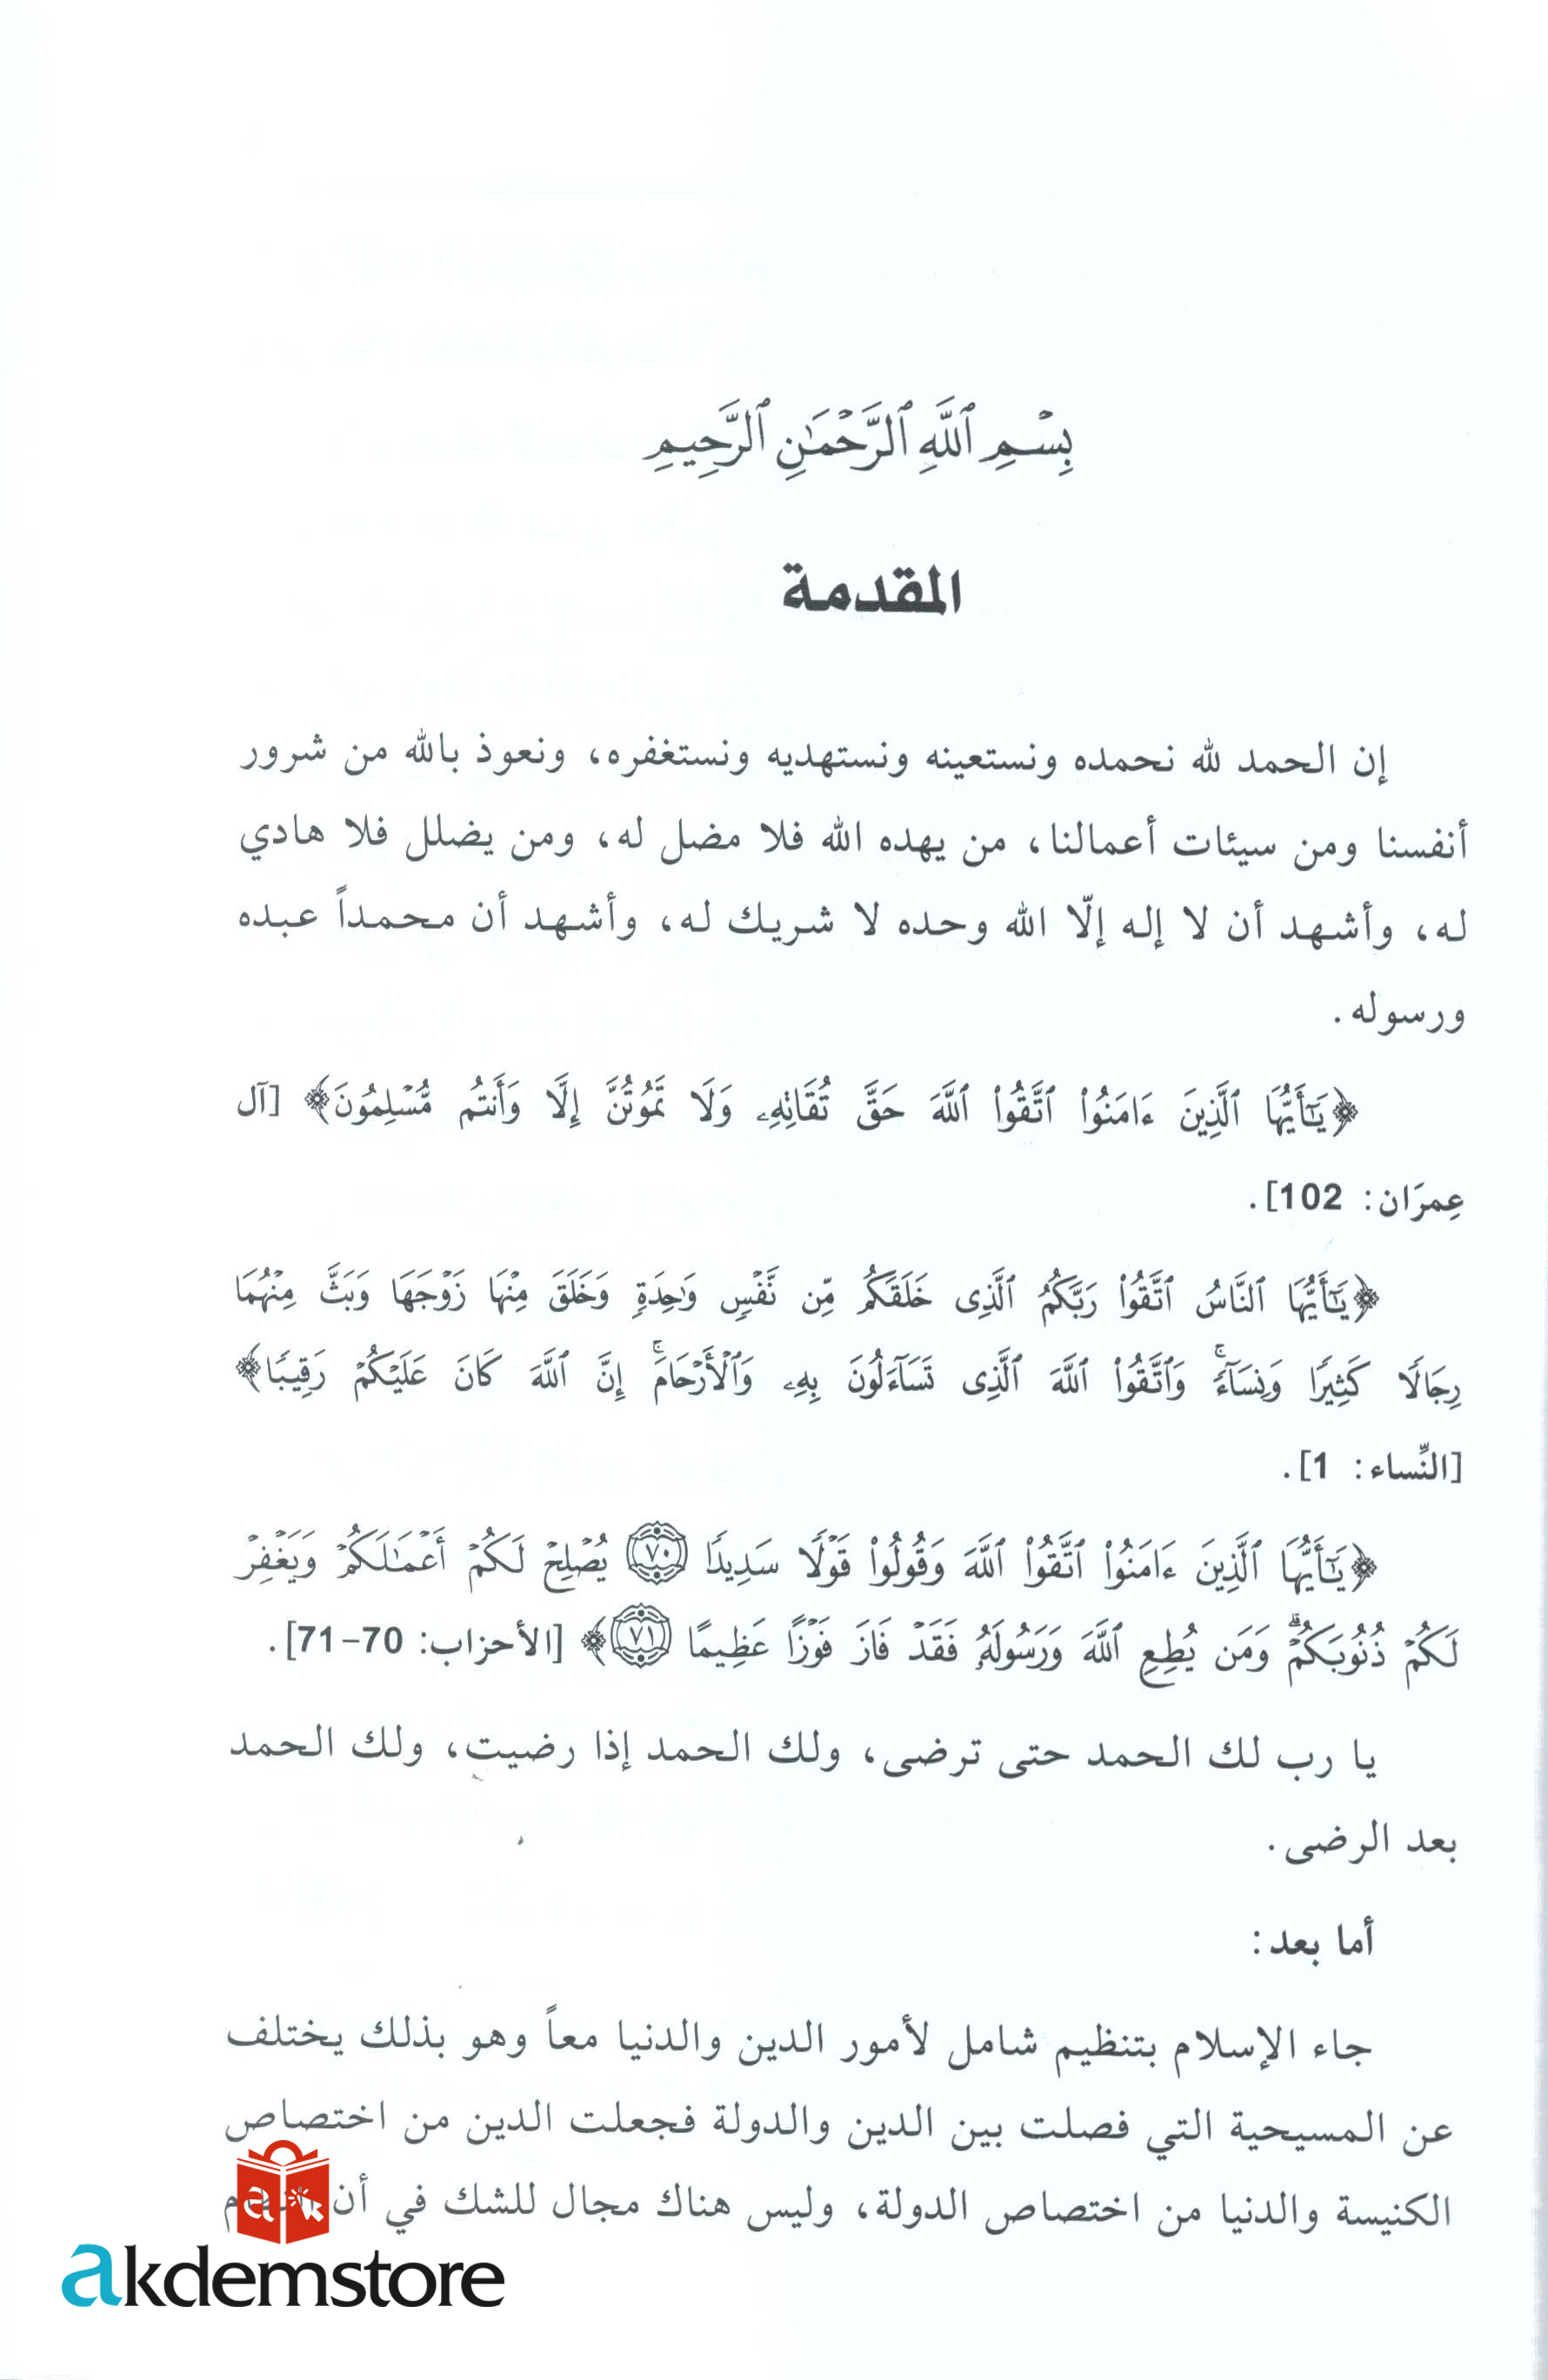 بِسْمِ ٱللَّهِ ٱلرَّحْمَـٰنِ ٱلرَّحِيمِ
المقدمة
إن الحمد لله نحمده ونستعينه ونستهديه ونستغفره، ونعوذ بالله من شرور
أنفسنا ومن سيئات أعمالنا، من يهده الله فلا مضل له، ومن يضلل فلا هادي
له، وأشهد أن لا إله إلّا الله وحده لا شريك له، وأشهد أن محمداً عبده
ورسوله.
﴿يَـٰٓأَيُّهَا ٱلَّذِينَ ءَامَنُوا۟ ٱتَّقُوا۟ ٱللَّهَ حَقَّ تُقَاتِهِۦ وَلَا تَمُوتُنَّ إِلَّا وَأَنتُم مُّسْلِمُونَ﴾ [آل
عِمرَان: 102].
﴿يَـٰٓأَيُّهَا ٱلنَّاسُ ٱتَّقُوا۟ رَبَّكُمُ ٱلَّذِى خَلَقَكُم مِّن نَّفْسٍ وَٰحِدَةٍ وَخَلَقَ مِنْهَا زَوْجَهَا وَبَثَّ مِنْهُمَا
رِجَالًا كَثِيرًا وَنِسَآءً ۚ وَٱتَّقُوا۟ ٱللَّهَ ٱلَّذِى تَسَآءَلُونَ بِهِۦ وَٱلْأَرْحَامَ ۚ إِنَّ ٱللَّهَ كَانَ عَلَيْكُمْ رَقِيبًا﴾
[النِّساء: 1].
﴿يَـٰٓأَيُّهَا ٱلَّذِينَ ءَامَنُوا۟ ٱتَّقُوا۟ ٱللَّهَ وَقُولُوا۟ قَوْلًا سَدِيدًا ٧٠ يُصْلِحْ لَكُمْ أَعْمَـٰلَكُمْ وَيَغْفِرْ
لَكُمْ ذُنُوبَكُمْ ۗ وَمَن يُطِعِ ٱللَّهَ وَرَسُولَهُۥ فَقَدْ فَازَ فَوْزًا عَظِيمًا ٧١﴾ [الأحزاب: 70-71].
يا رب لك الحمد حتى ترضى، ولك الحمد إذا رضيت، ولك الحمد
بعد الرضى.
أما بعد:
جاء الإسلام بتنظيم شامل لأمور الدين والدنيا معاً وهو بذلك يختلف
عن المسيحية التي فصلت بين الدين والدولة فجعلت الدين من اختصاص
الكنيسة والدنيا من اختصاص الدولة، وليس هناك مجال للشك في أن
a
akdemstore